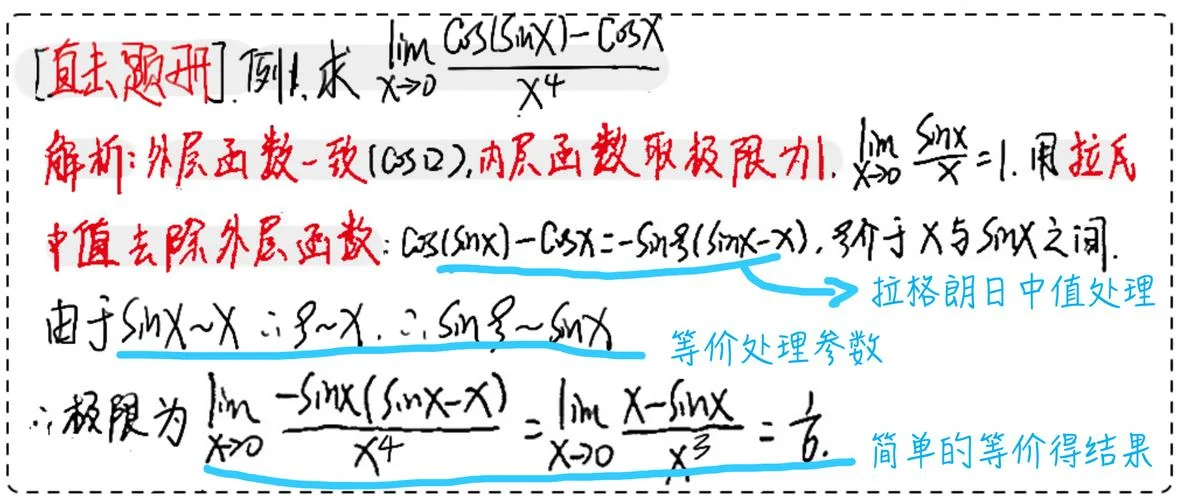 [直击题册].例1.求 lim x→0 Cos(Sinx)-Cosx / x⁴
解析:外层函数一致(Cos□),内层函数取极限为1. lim x→0 Sinx / x =1.用拉氏
中值去除外层函数:Cos(Sinx)-Cosx=-Sinξ(Sinx-x).ξ介于x与Sinx之间.
拉格朗日中值处理
由于Sinx~x ∴ξ~x.∴Sinξ~Sinx
等价处理参数
∴极限为 lim x→0 -Sinx(Sinx-x) / x⁴ = lim x→0 x-Sinx / x³ = 1/6.
简单的等价得结果